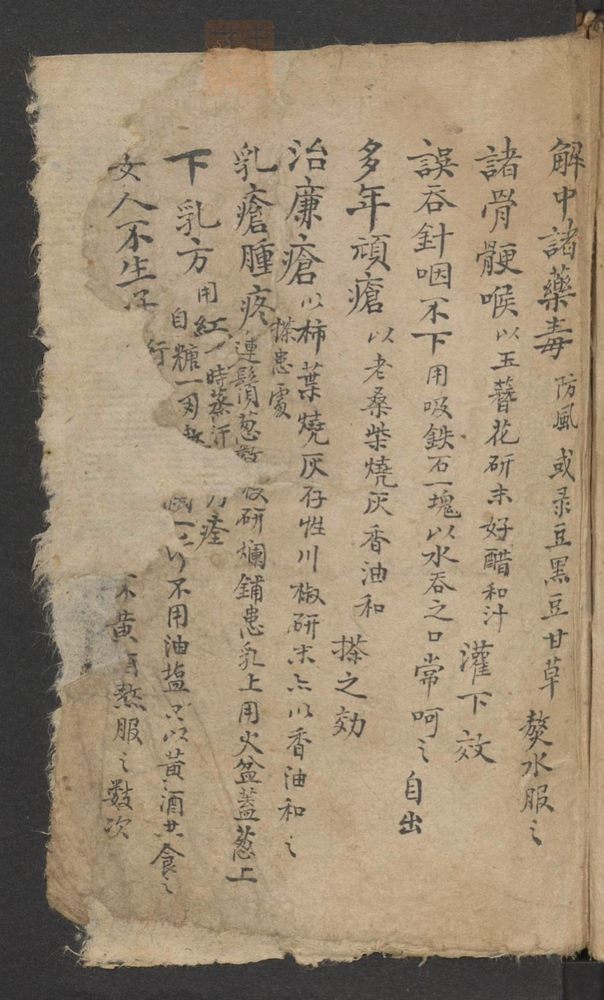 解中諸藥毒 防風 或彔豆黑豆甘草 熬水服之
諸骨骾喉 以玉簪花研末好醋和汁 灌下效
誤吞針咽不下用吸鉄石一塊以水吞之口常呵之自出
多年頑瘡 以老桑柴燒灰香油和 搽之効
治廉瘡 以柿葉燒灰存性川椒研末亦以香油和之
搽患處
乳瘡腫疼 連鬚葱 研爛鋪患乳上用火盆蓋葱上
一時蒸汗 痊
下乳方 用紅 不用油塩只以黄酒共食之
自糖一
女人不生子 行 黄 熬服之数次